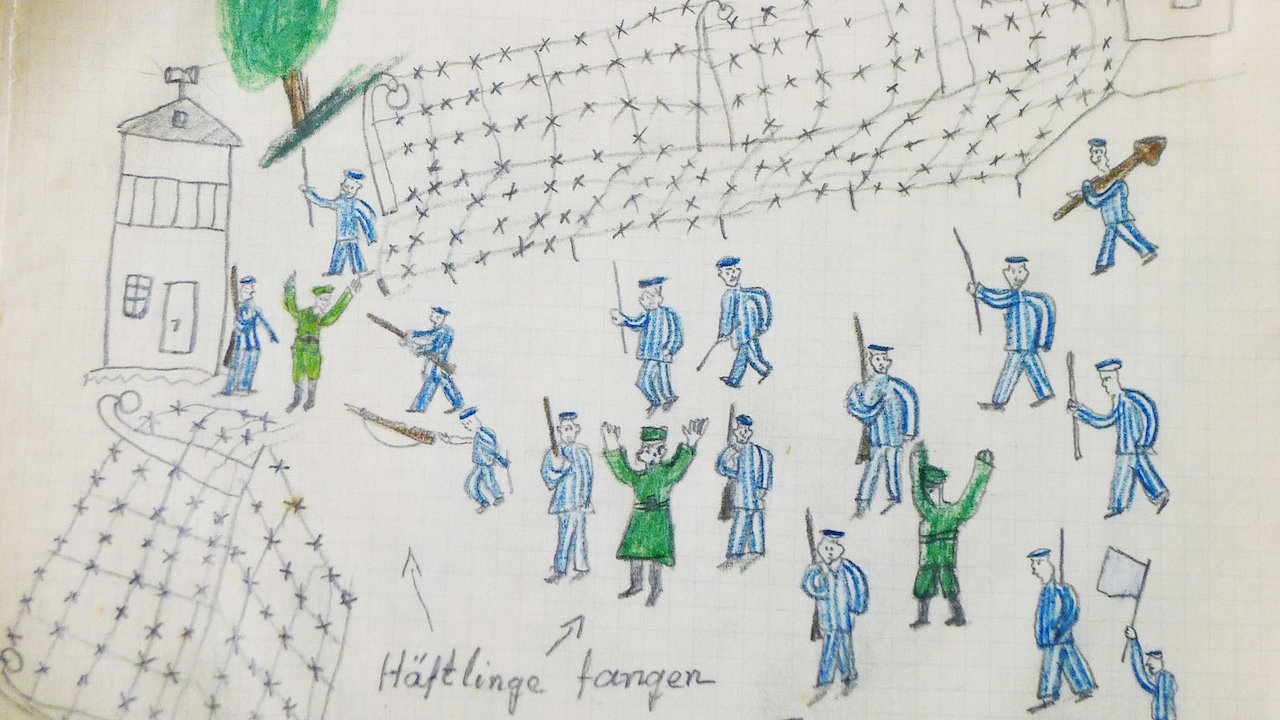 Häftlinge fangen